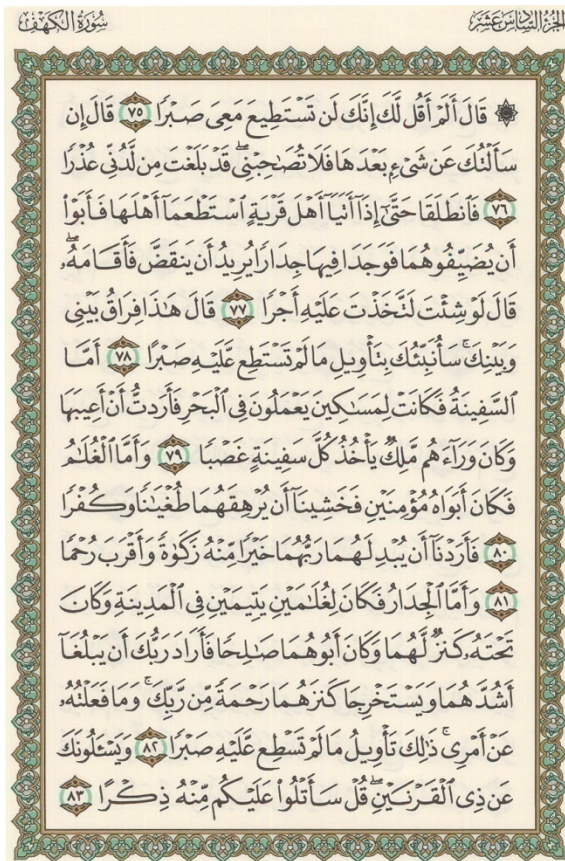 الجزء السادس عشر
سورة الكهف
۞ قَالَ أَلَمْ أَقُل لَّكَ إِنَّكَ لَن تَسْتَطِيعَ مَعِىَ صَبْرًا ٧٥ قَالَ إِن
سَأَلْتُكَ عَن شَىْءٍۭ بَعْدَهَا فَلَا تُصَـٰحِبْنِى ۖ قَدْ بَلَغْتَ مِن لَّدُنِّى عُذْرًا
٧٦ فَٱنطَلَقَا حَتَّىٰٓ إِذَآ أَتَيَآ أَهْلَ قَرْيَةٍ ٱسْتَطْعَمَآ أَهْلَهَا فَأَبَوْا۟
أَن يُضَيِّفُوهُمَا فَوَجَدَا فِيهَا جِدَارًا يُرِيدُ أَن يَنقَضَّ فَأَقَامَهُۥ ۖ
قَالَ لَوْ شِئْتَ لَتَّخَذْتَ عَلَيْهِ أَجْرًا ٧٧ قَالَ هَـٰذَا فِرَاقُ بَيْنِى
وَبَيْنِكَ ۚ سَأُنَبِّئُكَ بِتَأْوِيلِ مَا لَمْ تَسْتَطِع عَّلَيْهِ صَبْرًا ٧٨ أَمَّا
ٱلسَّفِينَةُ فَكَانَتْ لِمَسَـٰكِينَ يَعْمَلُونَ فِى ٱلْبَحْرِ فَأَرَدتُّ أَنْ أَعِيبَهَا
وَكَانَ وَرَآءَهُم مَّلِكٌ يَأْخُذُ كُلَّ سَفِينَةٍ غَصْبًا ٧٩ وَأَمَّا ٱلْغُلَـٰمُ
فَكَانَ أَبَوَاهُ مُؤْمِنَيْنِ فَخَشِينَآ أَن يُرْهِقَهُمَا طُغْيَـٰنًا وَكُفْرًا
٨٠ فَأَرَدْنَآ أَن يُبْدِلَهُمَا رَبُّهُمَا خَيْرًا مِّنْهُ زَكَوٰةً وَأَقْرَبَ رُحْمًا
٨١ وَأَمَّا ٱلْجِدَارُ فَكَانَ لِغُلَـٰمَيْنِ يَتِيمَيْنِ فِى ٱلْمَدِينَةِ وَكَانَ
تَحْتَهُۥ كَنزٌ لَّهُمَا وَكَانَ أَبُوهُمَا صَـٰلِحًا فَأَرَادَ رَبُّكَ أَن يَبْلُغَآ
أَشُدَّهُمَا وَيَسْتَخْرِجَا كَنزَهُمَا رَحْمَةً مِّن رَّبِّكَ ۚ وَمَا فَعَلْتُهُۥ
عَنْ أَمْرِى ۚ ذَٰلِكَ تَأْوِيلُ مَا لَمْ تَسْطِع عَّلَيْهِ صَبْرًا ٨٢ وَيَسْـَٔلُونَكَ
عَن ذِى ٱلْقَرْنَيْنِ ۖ قُلْ سَأَتْلُوا۟ عَلَيْكُم مِّنْهُ ذِكْرًا ٨٣